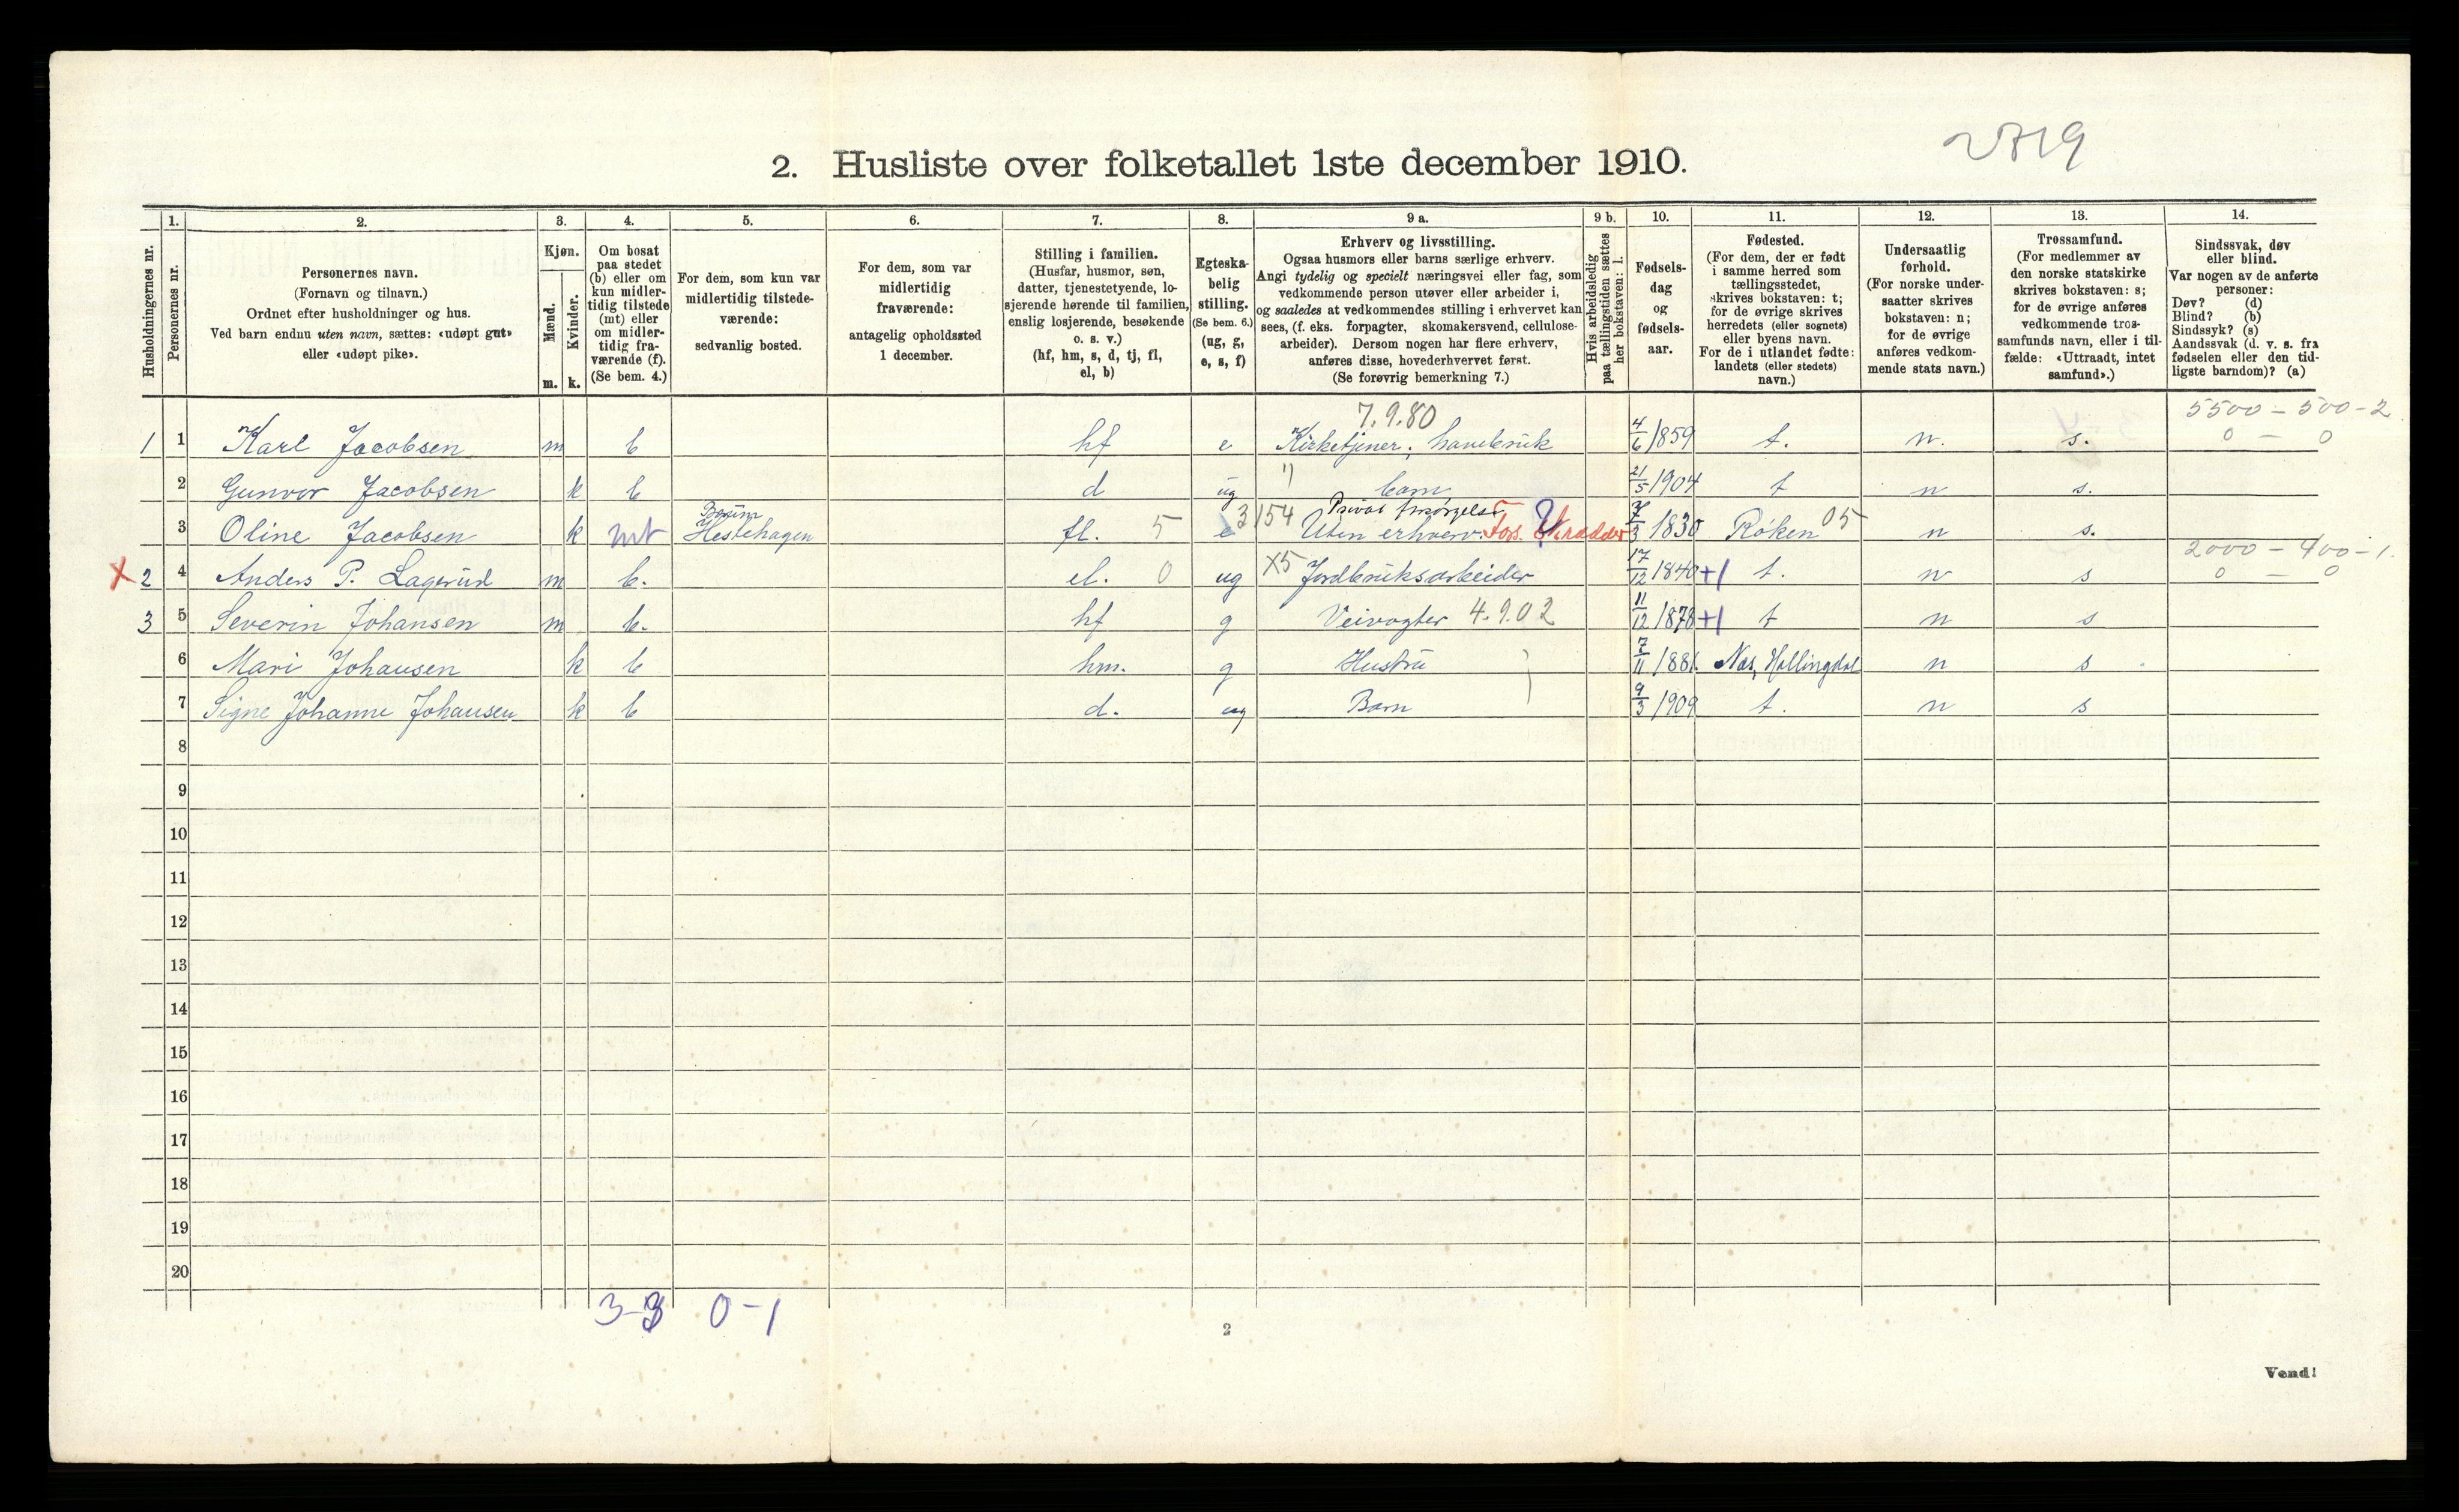 2719
2. Husliste over folketallet 1ste december 1910.
Husholdningernes nr.
1.
Personernes nr.
2.
Personernes navn.
(Fornavn og tilnavn.)
Ordnet efter husholdninger og hus.
Ved barn endnu uten navn, sættes: «udøpt gut»
eller «udøpt pike».
3.
Kjøn.
Mænd.
Kvinder.
m. k.
4.
Om bosat
paa stedet
(b) eller om
kun midler-
tidig tilstede
(mt) eller
om midler-
tidig fra-
værende (f).
(Se bem. 4.)
5.
For dem, som kun var
midlertidig tilstede-
værende:
sedvanlig bosted.
6.
For dem, som var
midlertidig
fraværende:
antagelig opholdssted
1 december.
7.
Stilling i familien.
(Husfar, husmor, søn,
datter, tjenestetyende, lo-
sjerende hørende til familien,
enslig losjerende, besøkende
o. s. v.)
(hf, hm, s, d, tj, fl,
el, b)
8.
Egteska-
belig
stilling.
(Se bem. 6.)
(ug, g,
e, s, f)
9 a.
Erhverv og livsstilling.
Ogsaa husmors eller barns særlige erhverv.
Angi tydelig og specielt næringsvei eller fag, som
vedkommende person utøver eller arbeider i,
og saaledes at vedkommendes stilling i erhvervet kan
sees, (f. eks. forpagter, skomakersvend, cellulose-
arbeider). Dersom nogen har flere erhverv,
anføres disse, hovederhvervet først.
(Se forøvrig bemerkning 7.)
9 b.
Hvis arbeidsledig
paa tællingstiden sættes
her bokstaven: l.
10.
Fødsels-
dag
og
fødsels-
aar.
11.
Fødested.
(For dem, der er født
i samme herred som
tællingsstedet,
skrives bokstaven: t;
for de øvrige skrives
herredets (eller sognets)
eller byens navn.
For de i utlandet fødte:
landets (eller stedets)
navn.)
12.
Undersaatlig
forhold.
(For norske under-
saatter skrives
bokstaven: n;
for de øvrige
anføres vedkom-
mende stats navn.)
13.
Trossamfund.
(For medlemmer av
den norske statskirke
skrives bokstaven: s;
for de øvrige anføres
vedkommende tros-
samfunds navn, eller i til-
fælde: «Uttraadt, intet
samfund».)
14.
Sindssvak, døv
eller blind.
Var nogen av de anførte
personer:
Døv? (d)
Blind? (b)
Sindssyk? (s)
Aandssvak (d. v. s. fra
fødselen eller den tid-
ligste barndom)? (a)
7.9.80 5500 - 500 - 2
1 1 Karl Jacobsen m b hf e Kirketjener, havebruk 4/6 1859 t. n. s. 0 - 0
2 Gunvor Jacobsen k b d ug barn 21/5 1904 t n s.
Bærum 3154 Privat forsørgelse
3 Oline Jacobsen k mt Hestehagen fl. 5 e Uten erhverv. 7/3 1830 Røken 05 n s.
2000 - 400 - 1
X 2 4 Anders P. Lagerud m b. el. 0 ug X5 Jordbruksarbeider 17/12 1840 +1 t. n s 0 - 0
3 5 Severin Johansen m b. hf g Veivogter 4.9.02 11/12 1878 +1 t n s
6 Mari Johansen k b hm. g Hustru 7/11 1881. Nes, Hallingdal n s
7 Signe Johanne Johansen k b d. ug Barn 9/3 1909 t. n s
8
9
10
11
12
13
14
15
16
17
18
19
20
3-3 0-1
2
Vend!